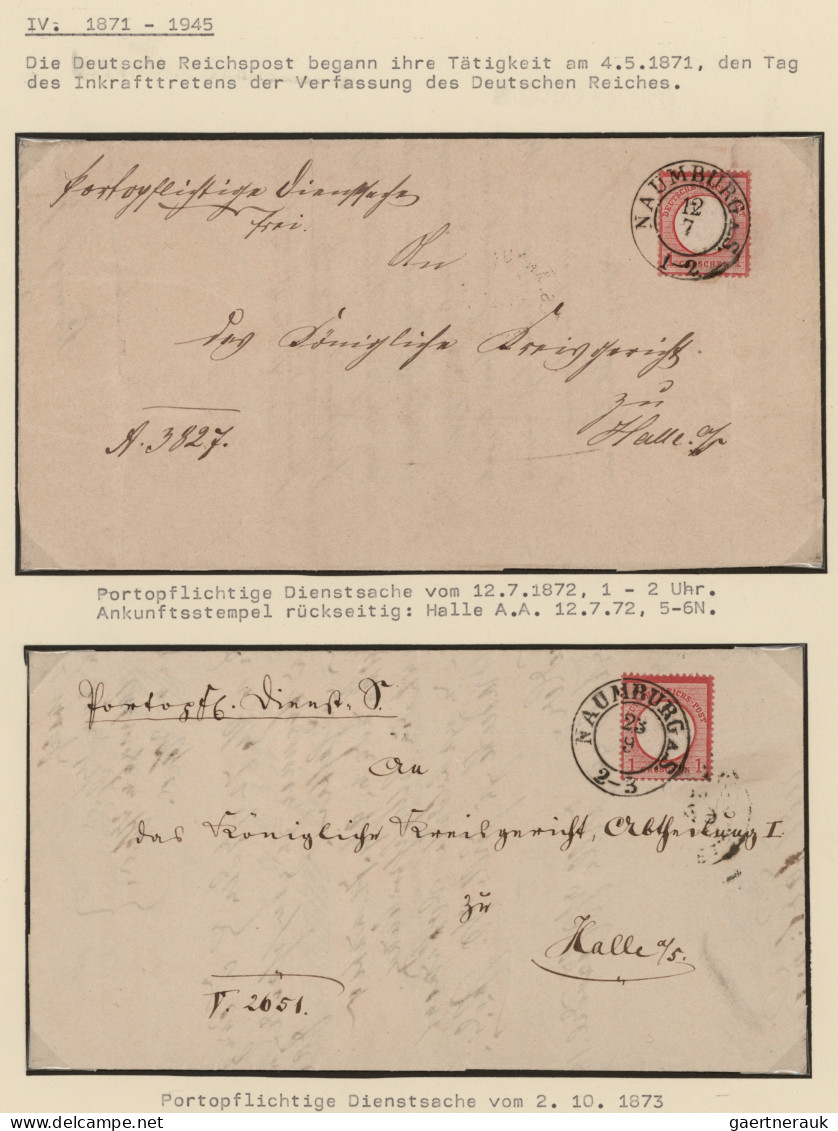 IV. 1871 - 1945
Die Deutsche Reichspost begann ihre Tätigkeit am 4.5.1871, den Tag
des Inkrafttretens der Verfassung des Deutschen Reiches.
Portopflichtige Dienstsache
frei.
NAUMBURG A.S.
12
7
1-2
An
das Königliche Kreisgericht.
zu
Halle a/
A. 3827.
Portopflichtige Dienstsache vom 12.7.1872, 1 - 2 Uhr.
Ankunftsstempel rückseitig: Halle A.A. 12.7.72, 5-6N.
Portopfl. Dienst. S.
NAUMBURG A.S.
23
9
2-3
1 1
An
das Königliche Kreisgericht, Abtheilung I
zu
Halle a/S.
V. 2651.
Portopflichtige Dienstsache vom 2. 10. 1873
gaertnerauk